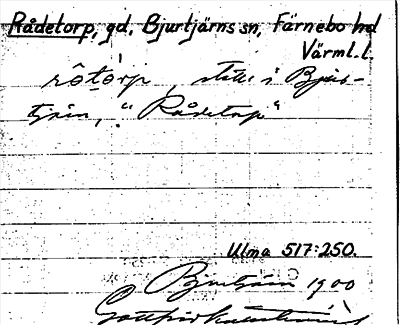 Rådetorp, gd, Bjurtjärns sn, Färnebo hd
Värml. l.
rôtórp, ställe i Bjur-
tjärn, "Rådetorp"
Ulma 517:250.
Bjurtjärn 1900
Gottfrid